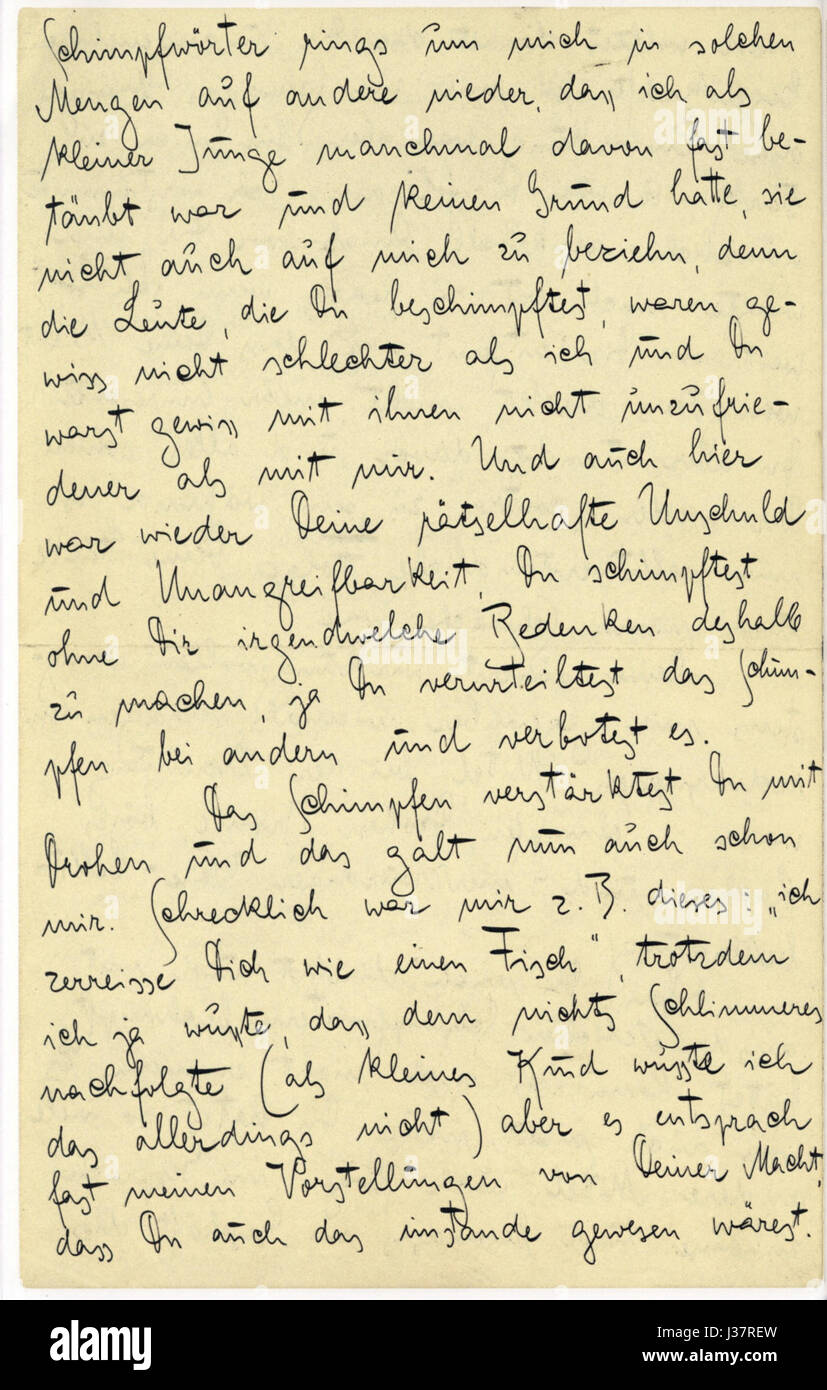 Schimpfwörter rings um mich in solchen
Mengen auf andere nieder, dass ich als
kleiner Junge manchmal davon fast be-
täubt war und keinen Grund hatte, sie
nicht auch auf mich zu beziehn, denn
die Leute, die Du beschimpftest, waren ge-
wiss nicht schlechter als ich und Du
warst gewiss mit ihnen nicht unzufrie-
dener als mit mir. Und auch hier
war wieder Deine rätselhafte Unschuld
und Unangreifbarkeit, Du schimpftest
ohne Dir irgendwelche Bedenken deshalb
zu machen, ja Du verurteiltest das Schim-
pfen bei andern und verbotest es.
Das Schimpfen verstärktest Du mit
Drohen und das galt nun auch schon
mir. Schrecklich war mir z. B. dieses: „ich
zerreisse Dich wie einen Fisch", trotzdem
ich ja wusste, dass dem nichts Schlimmeres
nachfolgte (als kleines Kind wusste ich
das allerdings nicht) aber es entsprach
fast meinen Vorstellungen von Deiner Macht,
dass Du auch das imstande gewesen wärest.
alamy
Image ID: J37REW
www.alamy.com